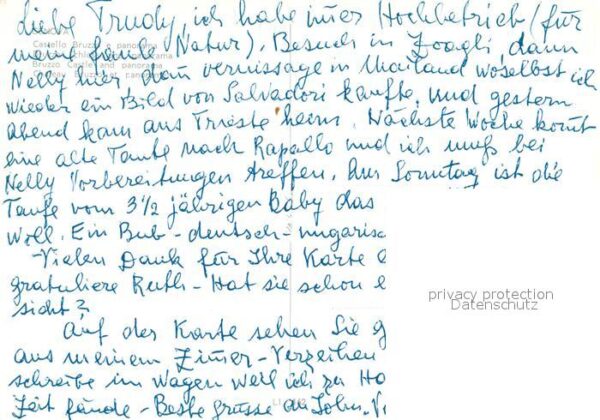 Liebe Trudy, ich habe im̅er Hochbetrieb (für
meine faule Natur). Besuch in Zoagli, dann
Castello Bruzzo e panorama
Bruzzo Castle and panorama
Nelly hier, dan̅ vernissage in Mailand woselbst ich
wieder ein Bild von Salvadori kaufte, und gestern
Abend kam aus Trieste heim. Nächste Woche kom̅t
eine alte Tante nach Rapallo und ich muß bei
Nelly Vorbereitungen treffen. Am Sonntag ist die
Taufe vom 3½ jährigen Baby das
Woll. Ein Bub - deutsch - ungarisc
- Vielen Dank für Ihre Karte
gratuliere Ruth - Hat sie schon
sicht?
Auf der Karte sehen Sie g
aus meinem Zim̅er - Verzeihen
schreibe im Wagen weil ich zu Ho
Zeit fände - Beste Grüsse an John.
privacy protection
Datenschutz